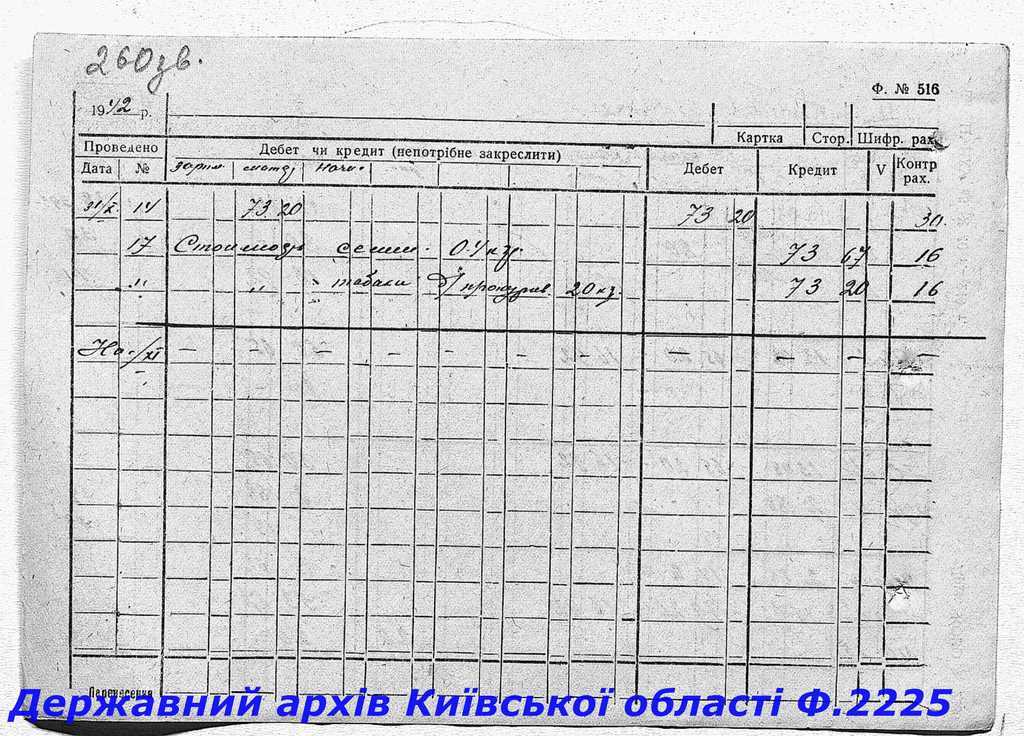 260 зв.
Ф. № 516
1942 р.
Картка Стор. Шифр. рах.
Проведено Дебет чи кредит (непотрібне закреслити) Дебет Кредит V Контр рах.
Дата №
31/X 14 73 20 73 20 30
17 семи 04 кг 73 67 16
" " табаки 20 кг. 73 20 16
На /XI — — — — — — — — — — —
Перенесення
Державний архів Київської області Ф.2225